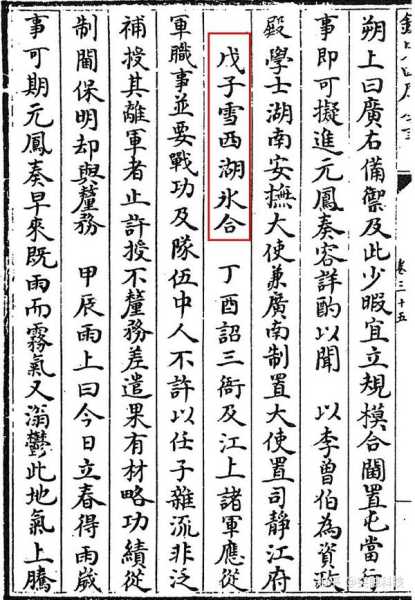 卷三十五
朔上曰廣右備禦及此少暇宜立規模合閫置屯當行
事即可擬進元鳳奏容詳酌以聞　以李曾伯為資政
殿學士湖南安撫大使兼廣南制置大使置司靜江府
戊子雪西湖氷合　丁酉詔三衙及江上諸軍應從
軍職事並要戰功及隊伍中人不許以任子雜流非泛
補授其離軍者止許授不釐務差遣果有材略功績從
制閫保明却與釐務　甲辰雨上曰今日立春得雨歲
事可期元鳳奏早來既雨而霧氣又滃鬱此地氣上騰
知乎